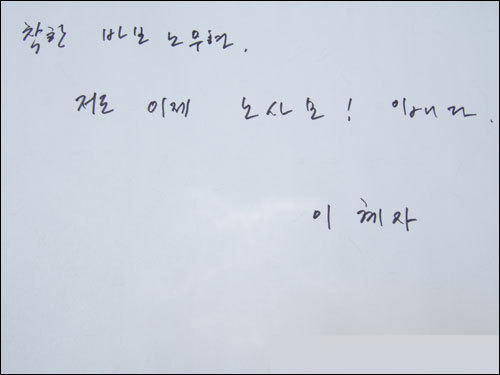 착한 바보 노무현.
저도 이제 노사모! 입니다.
이혜자